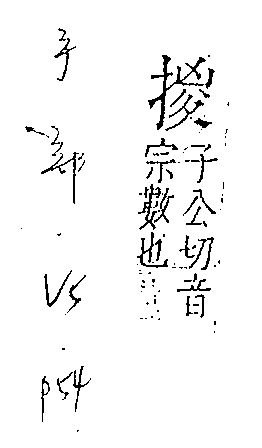 㨑
子公切音
宗數也
手部.V5.P54